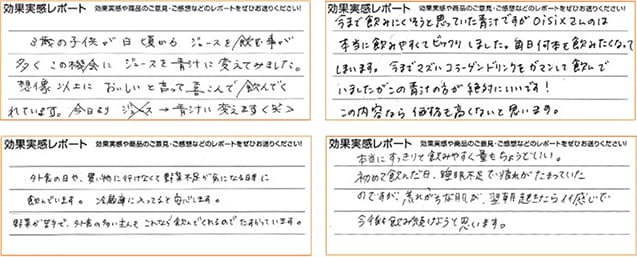 効果実感レポート 効果実感や商品のご意見・ご感想などのレポートをぜひお送りください!
3歳の子供が日頃からジュースを飲む事が
多くこの機会にジュースを青汁に変えてみました。
想像以上においしいと言って喜こんで飲んでく
れています。今日よりジュース→青汁に変えます(笑)
効果実感レポート 効果実感や商品のご意見・ご感想などのレポートをぜひお送りください!
今まで飲みにくそうと思っていた青汁ですがOisixさんのは
本当に飲みやすくてビックリしました。毎日何本も飲みたくなって
しまいます。今までマズいコラーゲンドリンクをガマンして飲んで
いましたがこの青汁の方が絶対にいいです!
この内容なら価格も高くないと思います。
効果実感レポート 効果実感や商品のご意見・ご感想などのレポートをぜひお送りください!
外食の日や、買い物に行けなくて野菜不足が気になる日に
飲んでいます。冷蔵庫に入ってると安心します。
野菜が苦手で、外食の多い主人もこれなら飲んでくれるのでたすかっています。
効果実感レポート 効果実感や商品のご意見・ご感想などのレポートをぜひお送りください!
本当にすっきりと飲みやすく量もちょうどいい。
初めて飲んだ日、睡眠不足で疲れがたまっていた
のですが、荒れがちな肌が、翌朝起きたらイイ感じで
今後も飲み続けようと思います。